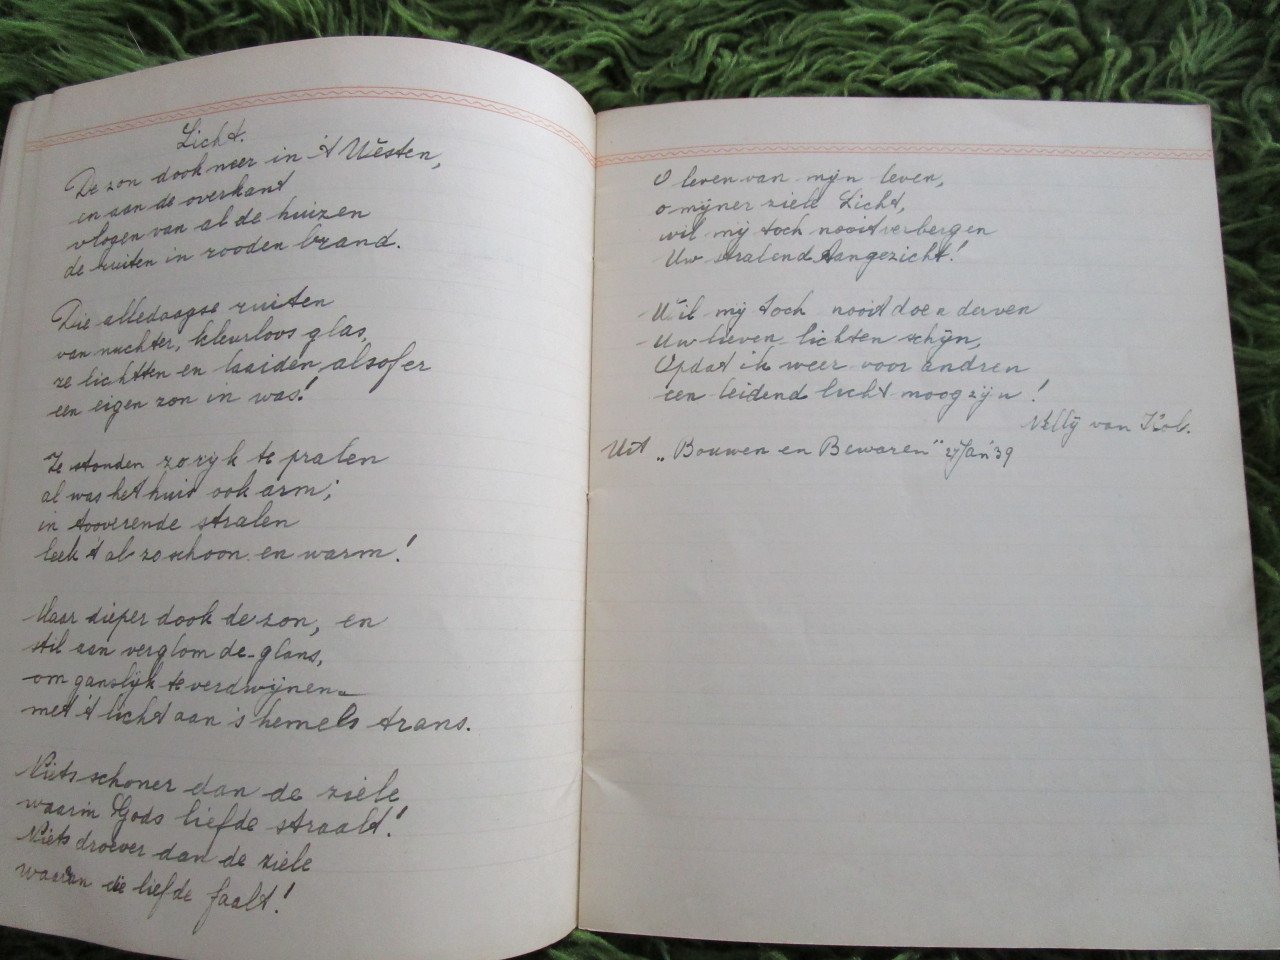 Licht.
De zon dook neer in 't Westen,
en aan de overkant
vlogen van al de huizen
de ruiten in rooden brand.
Die alledaagse ruiten
van nuchter, kleurloos glas,
ze lichtten en laaiden alsof er
een eigen zon in was!
Ze stonden zo ryk te pralen
al was het huis ook arm;
in tooverende stralen
leek 't al zo schoon en warm!
Maar dieper dook de zon, en
stil aan verglom de glans,
om ganslijk te verdwijnen
met 't licht aan 's hemels trans.
Niets schoner dan de ziele
waarin Gods liefde straalt!
Niets droever dan de ziele
waarin die liefde faalt!
O leven van mijn leven,
o mijner ziele Licht,
wil mij toch nooit verbergen
Uw stralend Aangezicht!
Wil mij toch nooit doen derven
Uw lieven lichten schijn,
Opdat ik weer voor andren
een leidend licht moog zijn!
Nelly van Kol.
Uit „Bouwen en Bewaren" 27 Jan '39